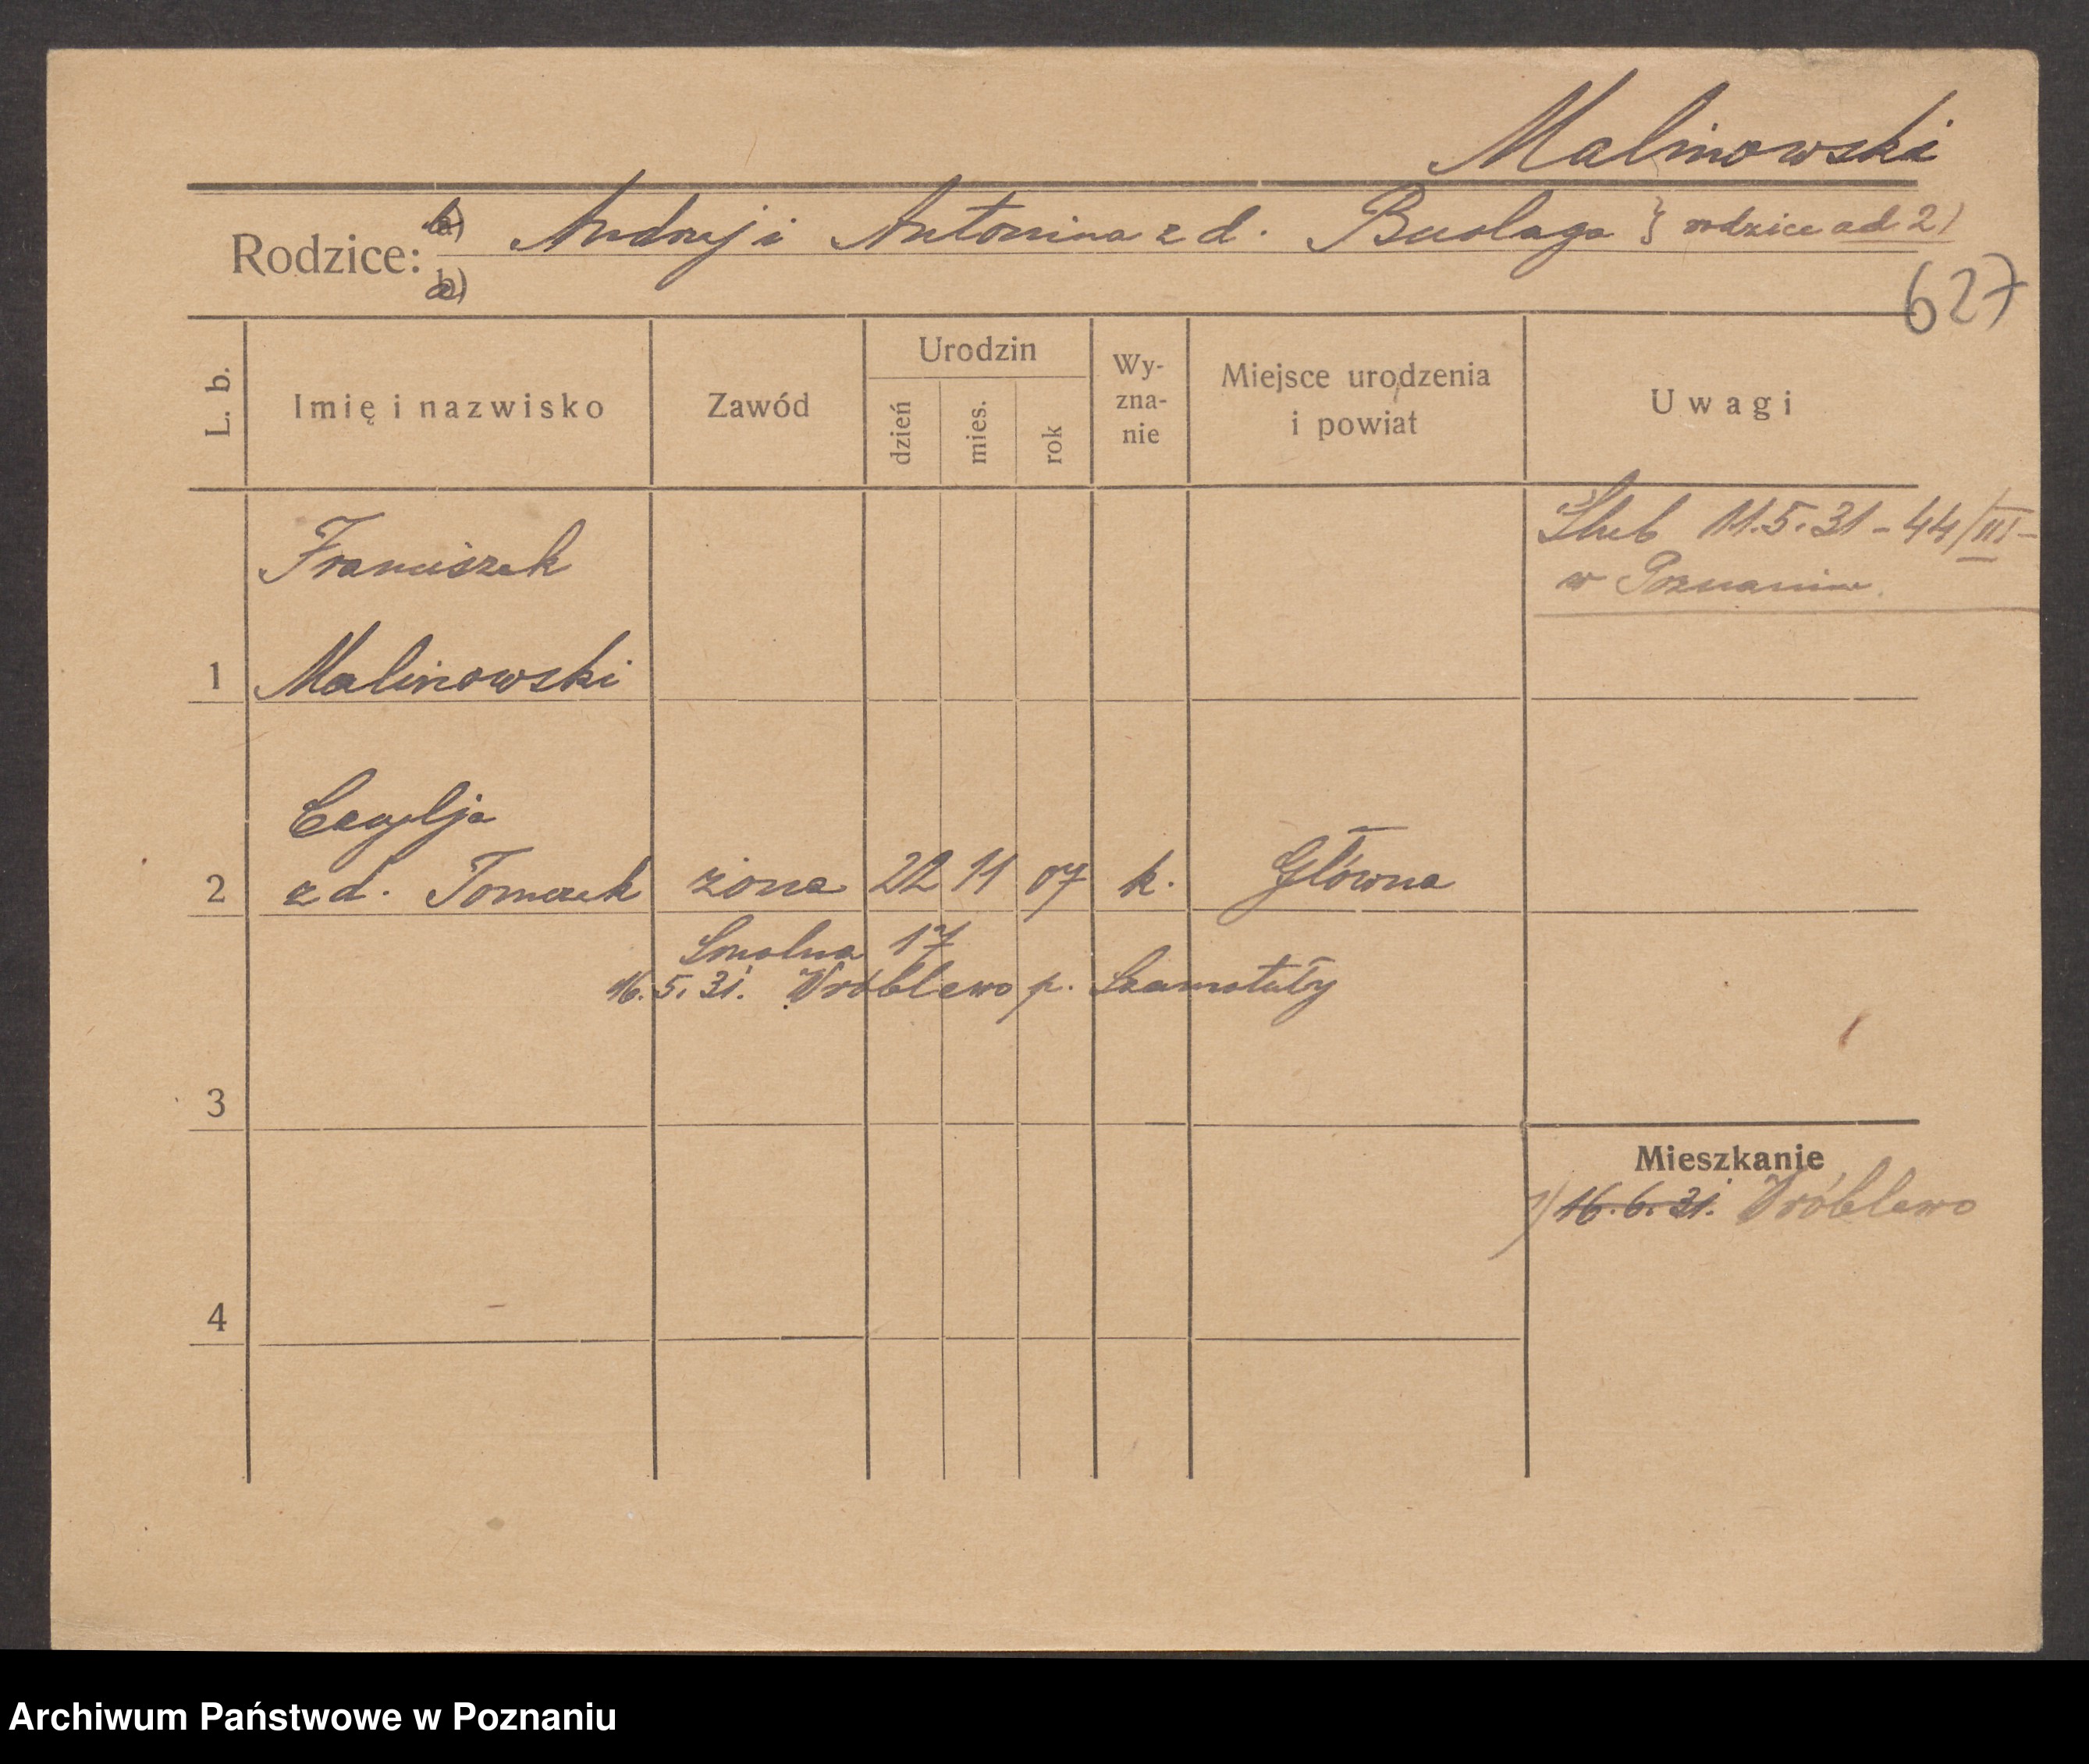 Malinowski
Rodzice: b) Andrzej i Antonina z d. Buslaga } rodzice ad 2)
a)
627
L. b.
Imię i nazwisko
Zawód
Urodzin
dzień
mies.
rok
Wy-
zna-
nie
Miejsce urodzenia
i powiat
Uwagi
Franciszek
Ślub 11.5.31 - 44/III -
w Poznaniu.
1 Malinowski
Cecylja
2 z d. Tomczak żona 22 11 07 k. Główna
Smolna 17
16.5.31. Wróblewo p. Szamotuły
3
Mieszkanie
1) 16.6.31. Wróblewo
4
Archiwum Państwowe w Poznaniu